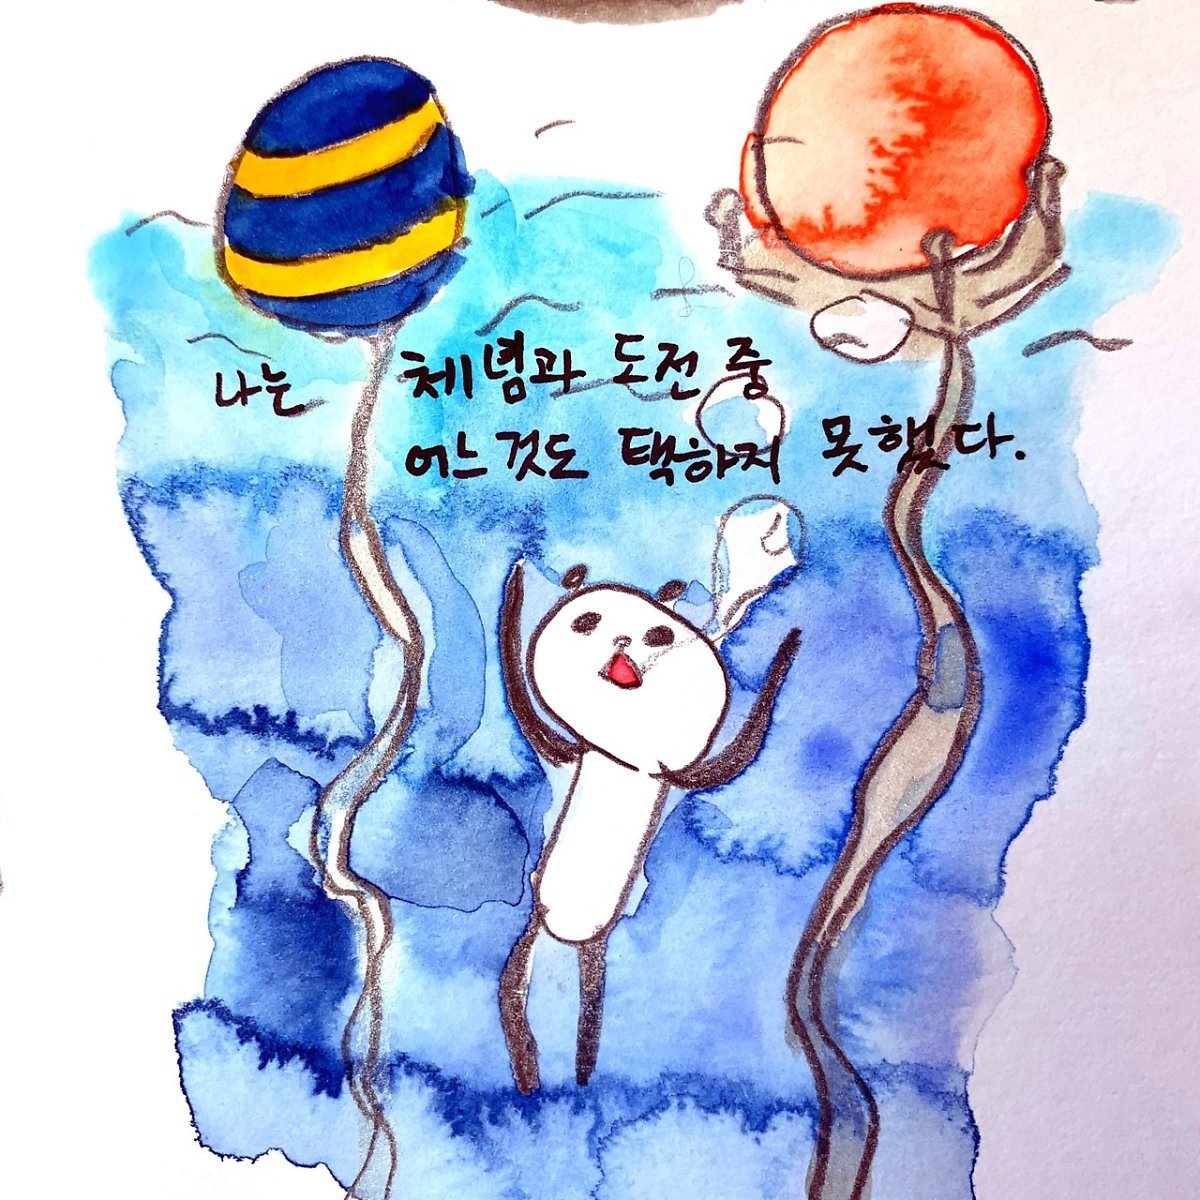 나는 체념과 도전 중
어느것도 택하지 못했다.